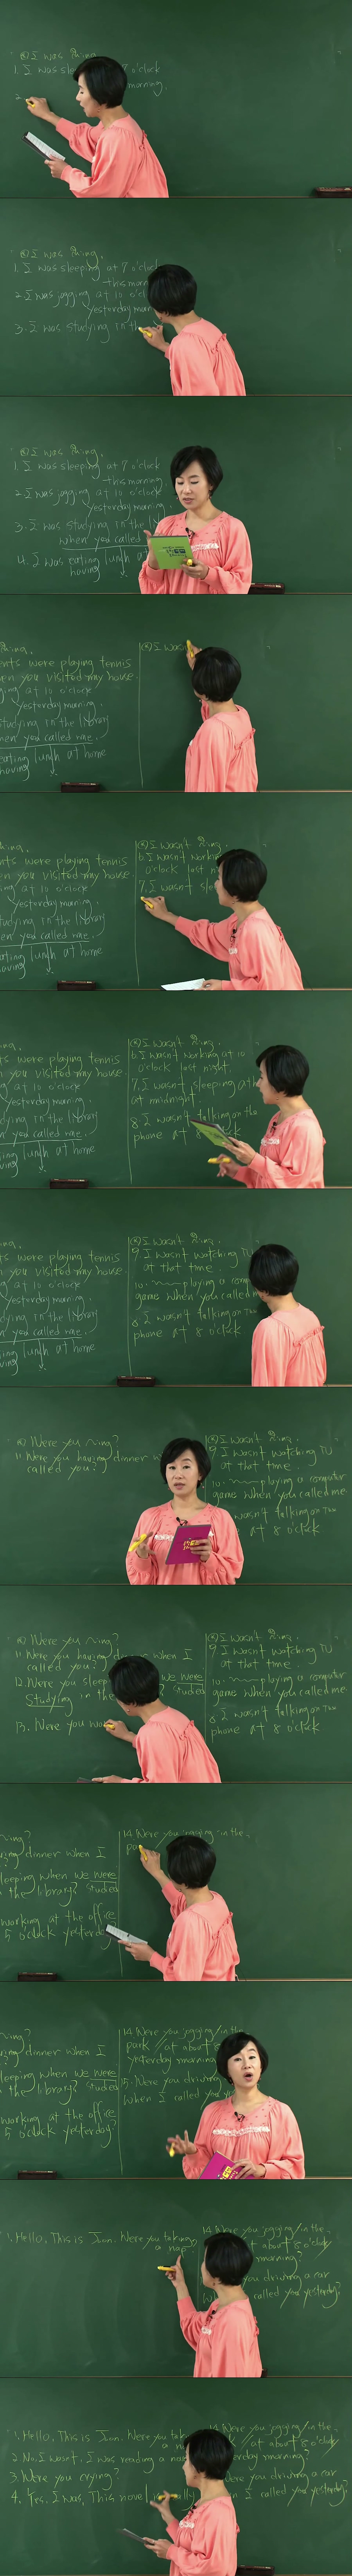 I was ~ing.
1. I was sle 7 o'clock
morning.
2.
I was ~ing.
1. I was sleeping at 7 o'clock
this morning
2. I was jogging at 10 o'cl
yesterday mor
3. I was studying in th
I was ~ing.
1. I was sleeping at 7 o'clock
this morning
2. I was jogging at 10 o'clock
yesterday morning
3. I was studying in the
when you called
4. I was eating lunch at
having
~ing.
ents were playing tennis
en you visited my house.
ging at 10 o'clock
yesterday morning.
studying in the library
hen you called me.
eating lunch at home
having
I was
~ing.
nts were playing tennis
en you visited my house.
ing at 10 o'clock
yesterday morning.
tudying in the library
en you called me.
ating lunch at home
aving
I wasn't ~ing.
6. I wasn't workin
o'clock last n
7. I wasn't sle
ing.
ts were playing tennis
you visited my house.
g at 10 o'clock
yesterday morning.
dying in the library
n you called me.
ing lunch at home
ing
I wasn't ~ing.
6. I wasn't working at 10
o'clock last night.
7. I wasn't sleeping
at midnight.
8 I wasn't talking on the
phone at 8 clock
ing.
ts were playing tennis
you visited my house.
g at 10 o'clock
yesterday morning.
dying in the library
you called me.
ing lunch at home
ing
I wasn't ~ing.
9 I wasn't watching TV
at that time.
10. playing a comp
games when you called m
8 I wasn't talking on the
phone at 8 o'clock
Were you ~ing?
11. Were you having dinner
called you?
I wasn't ~ing.
9 I wasn't watching TV
at that time.
10. playing a computer
games when you called me.
wasn't talking on the
at 8 o'clock
Were you ~ing?
11. Were you having d when I
called you?
12. Were you sleep we were
studying in the studied
13. Were you wor
I wasn't ~ing.
9 I wasn't watching TV
at that time.
10. playing a computer
games when you called me.
8 I wasn't talking on the
phone at 8 o'clock
~ing?
ing dinner when I
?
leeping when we were
the library? studied
working at the office
5 o'clock yesterday
14. Were you jogging in the
pa
~ing?
ng dinner when I
?
eeping when we were
the library? studied
working at the office
5 o'clock yesterday?
14. Were you jogging/in the
park/at about 8
yesterday morning
15. Were you driving
when I called you
1. Hello, This is Joon. Were you taking
a nap
14 Were you jogging/in the
at about 8 o'clock/
morning?
you driving a car
called you yesterday?
1. Hello, This is Joon. Were you tak
a n
2. No, I wasn't. I was reading a no
3. Were you crying?
4. Yes, I was, This novel ally
Were you jogging/in the
/at about 8 o'clock/
erday morning?
ere you driving a car
n I called you yesterday?